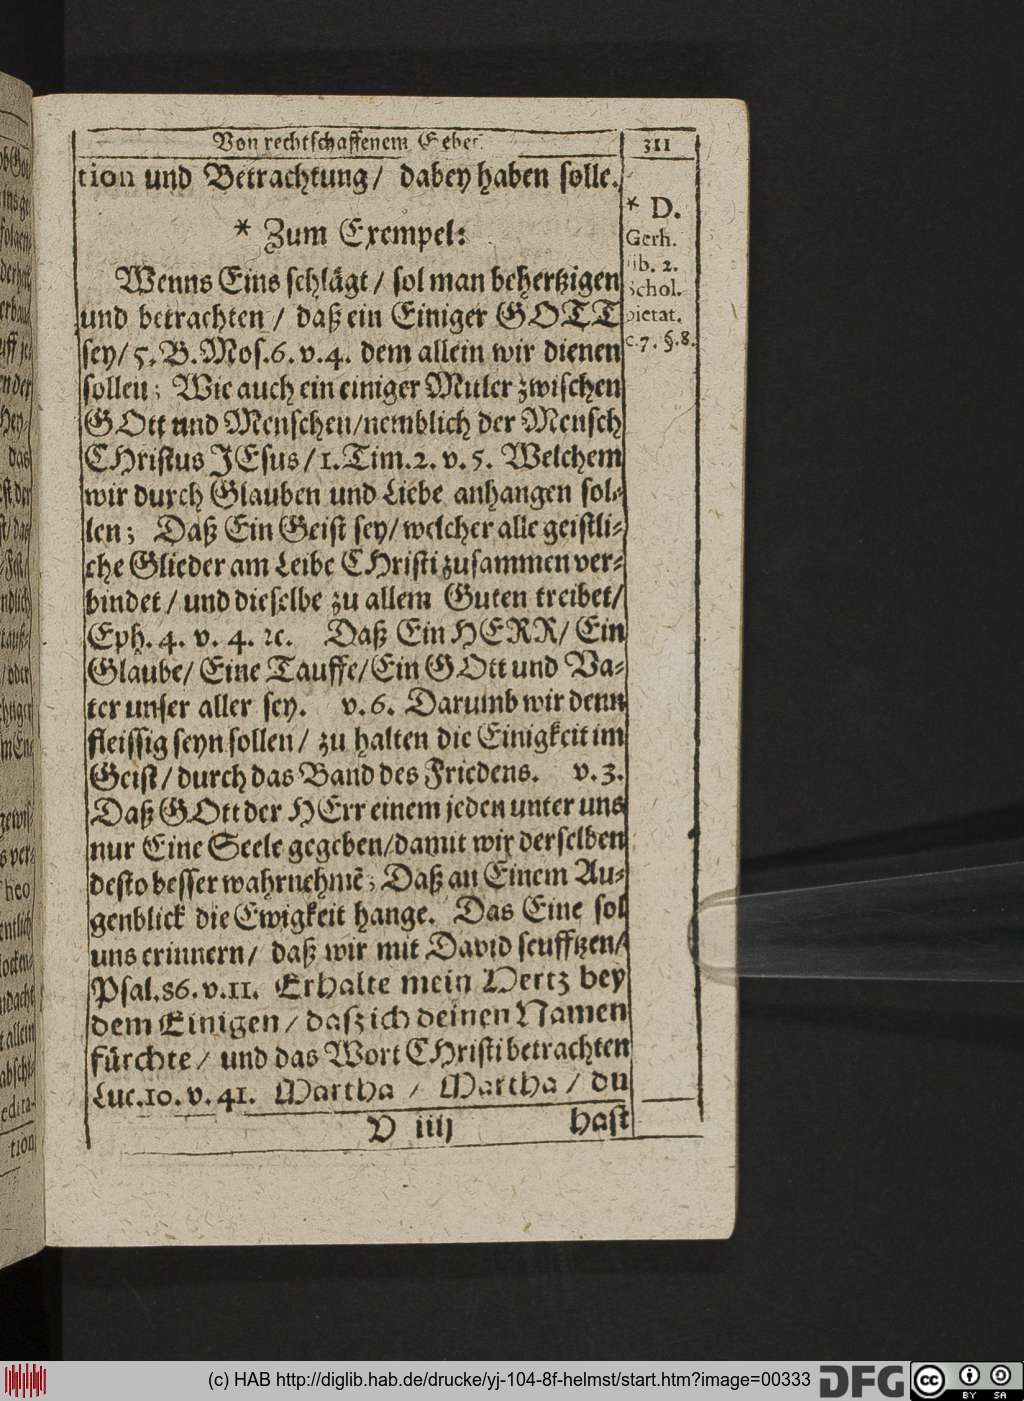 Von rechtschaffenem Gebet. 311
tion und Betrachtung / dabey haben solle.
* Zum Exempel:
Wenns Eins schlägt / sol man behertzigen
und betrachten / daß ein Einiger GOTT
sey / 5. B. Mos. 6. v. 4. dem allein wir dienen
sollen; Wie auch ein einiger Mitler zwischen
GOtt und Menschen / nemblich der Mensch
CHristus JEsus / 1. Tim. 2. v. 5. Welchem
wir durch Glauben und Liebe anhangen sol-
len; Daß Ein Geist sey / welcher alle geistli-
che Glieder am Leibe CHristi zusammen ver-
bindet / und dieselbe zu allem Guten treibet /
Eph. 4. v. 4. ꝛc. Daß Ein HERR / Ein
Glaube / Eine Tauffe / Ein GOtt und Va-
ter unser aller sey. v. 6. Darumb wir denn
fleissig seyn sollen / zu halten die Einigkeit im
Geist / durch das Band des Friedens. v. 3.
Daß GOtt der HErr einem jeden unter uns
nur Eine Seele gegeben / damit wir derselben
desto besser wahrnehmē; Daß an Einem Au-
genblick die Ewigkeit hange. Das Eine sol
uns erinnern / daß wir mit David seufftzen /
Psal. 86. v. 11. Erhalte mein Hertz bey
dem Einigen / daß ich deinen Namen
fürchte / und das Wort CHristi betrachten
Luc. 10. v. 41. Martha / Martha / du
V iiij hast
* D.
Gerh.
lib. 2.
Schol.
pietat.
c. 7. §. 8.
(c) HAB http://diglib.hab.de/drucke/yj-104-8f-helmst/start.htm?image=00333
DFG
cc
BY SA